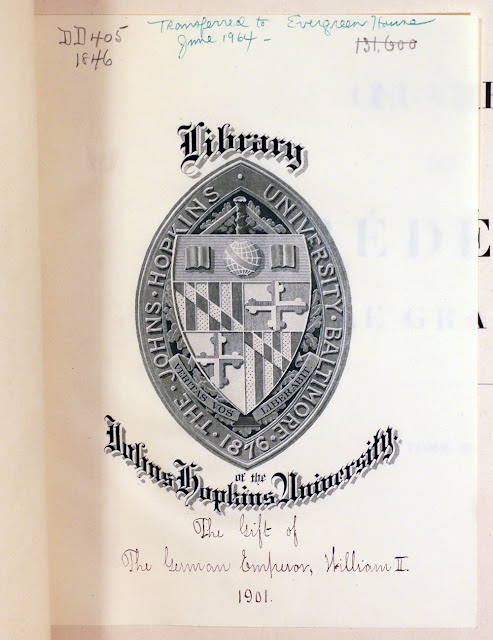 Transferred to Evergreen House
June 1964 -
DD405
1846
131,600
Library
· THE · JOHNS · HOPKINS · UNIVERSITY · BALTIMORE ·
VERITAS VOS LIBERABIT
· 1876 ·
of the
Johns Hopkins University.
The Gift of
The German Emperor, William II.
1901.